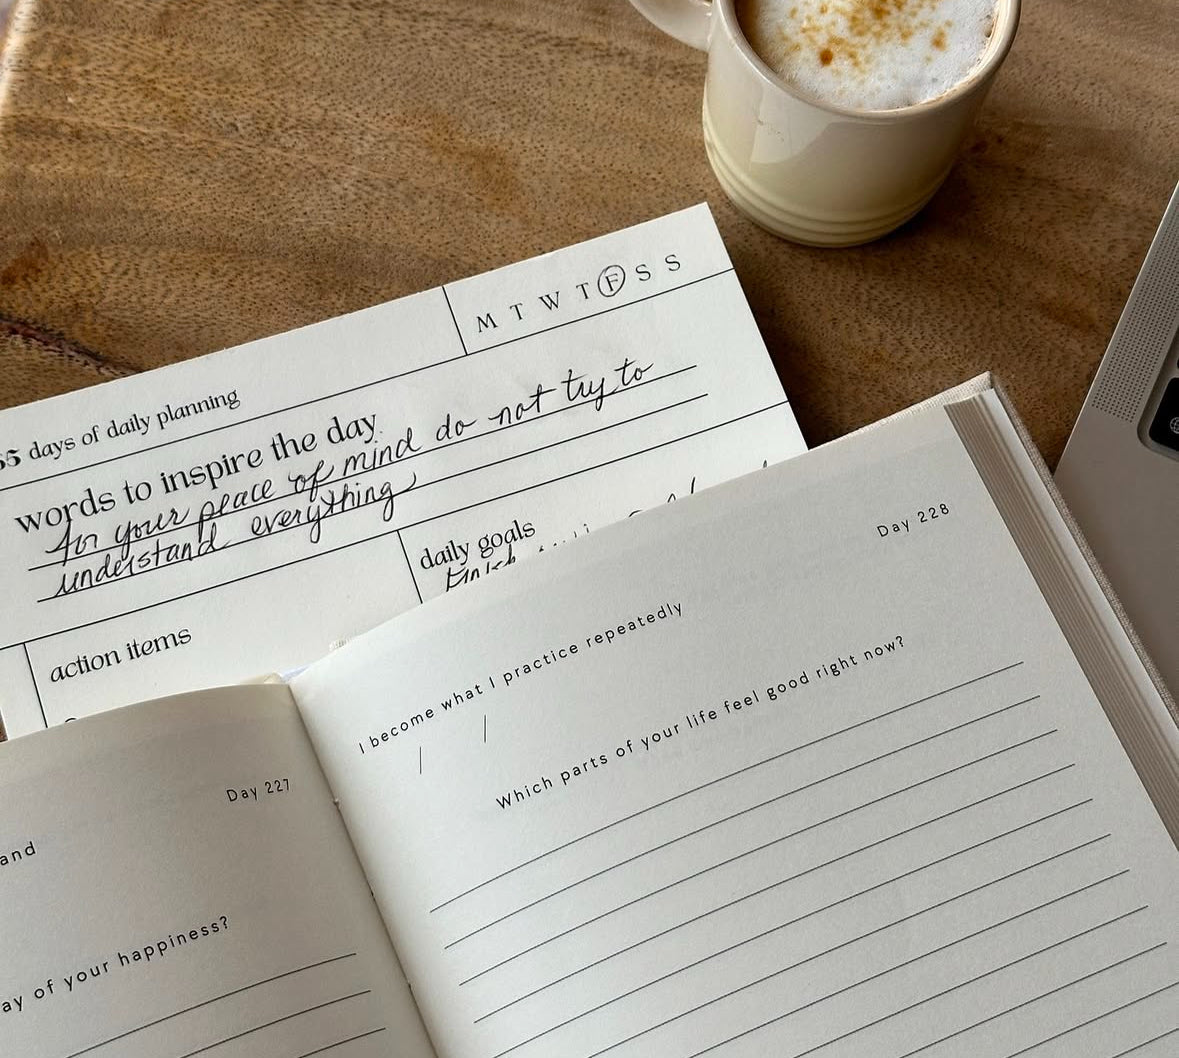 M T W T F S S
days of daily planning
words to inspire the day
for your peace of mind do not try to
understand everything
daily goals
finish
action items
Day 228
I become what I practice repeatedly
/ /
Which parts of your life feel good right now?
Day 227
and
of your happiness?